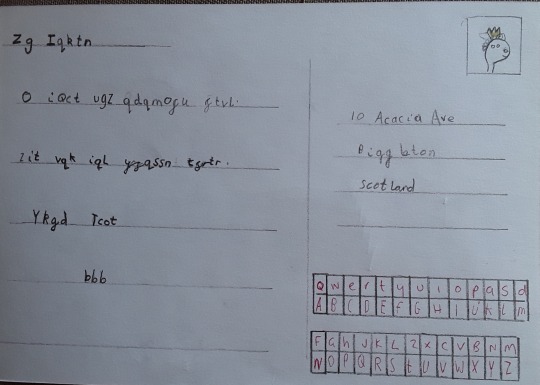 Zg Iqktn
O iQct ugZ qdqmofu ftvl.
Zit vqk iql
Ykgd Tcot
bbb
10 Acacia Ave
Scotland
Q w e r t y u i o p a s d
A B C D E F G H I J K L M
F G h J K L Z X C V B N M
N O P Q R S t U V W X Y Z